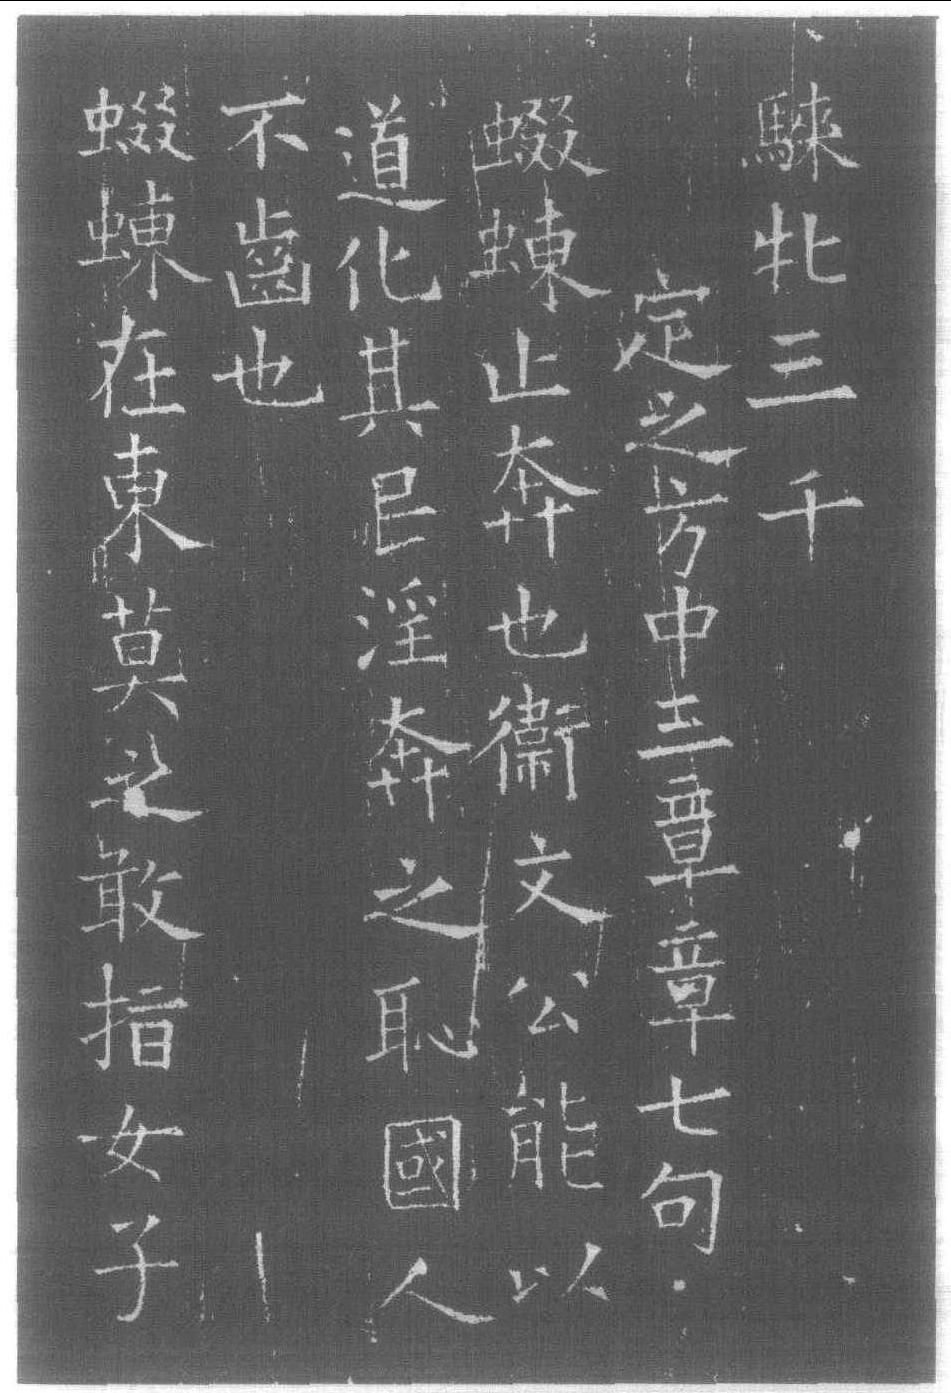 騋牝三千
定之方中三章章七句
蝃蝀止奔也衛文公能以
道化其民淫奔之恥國人
不齒也
蝃蝀在東莫之敢指女子